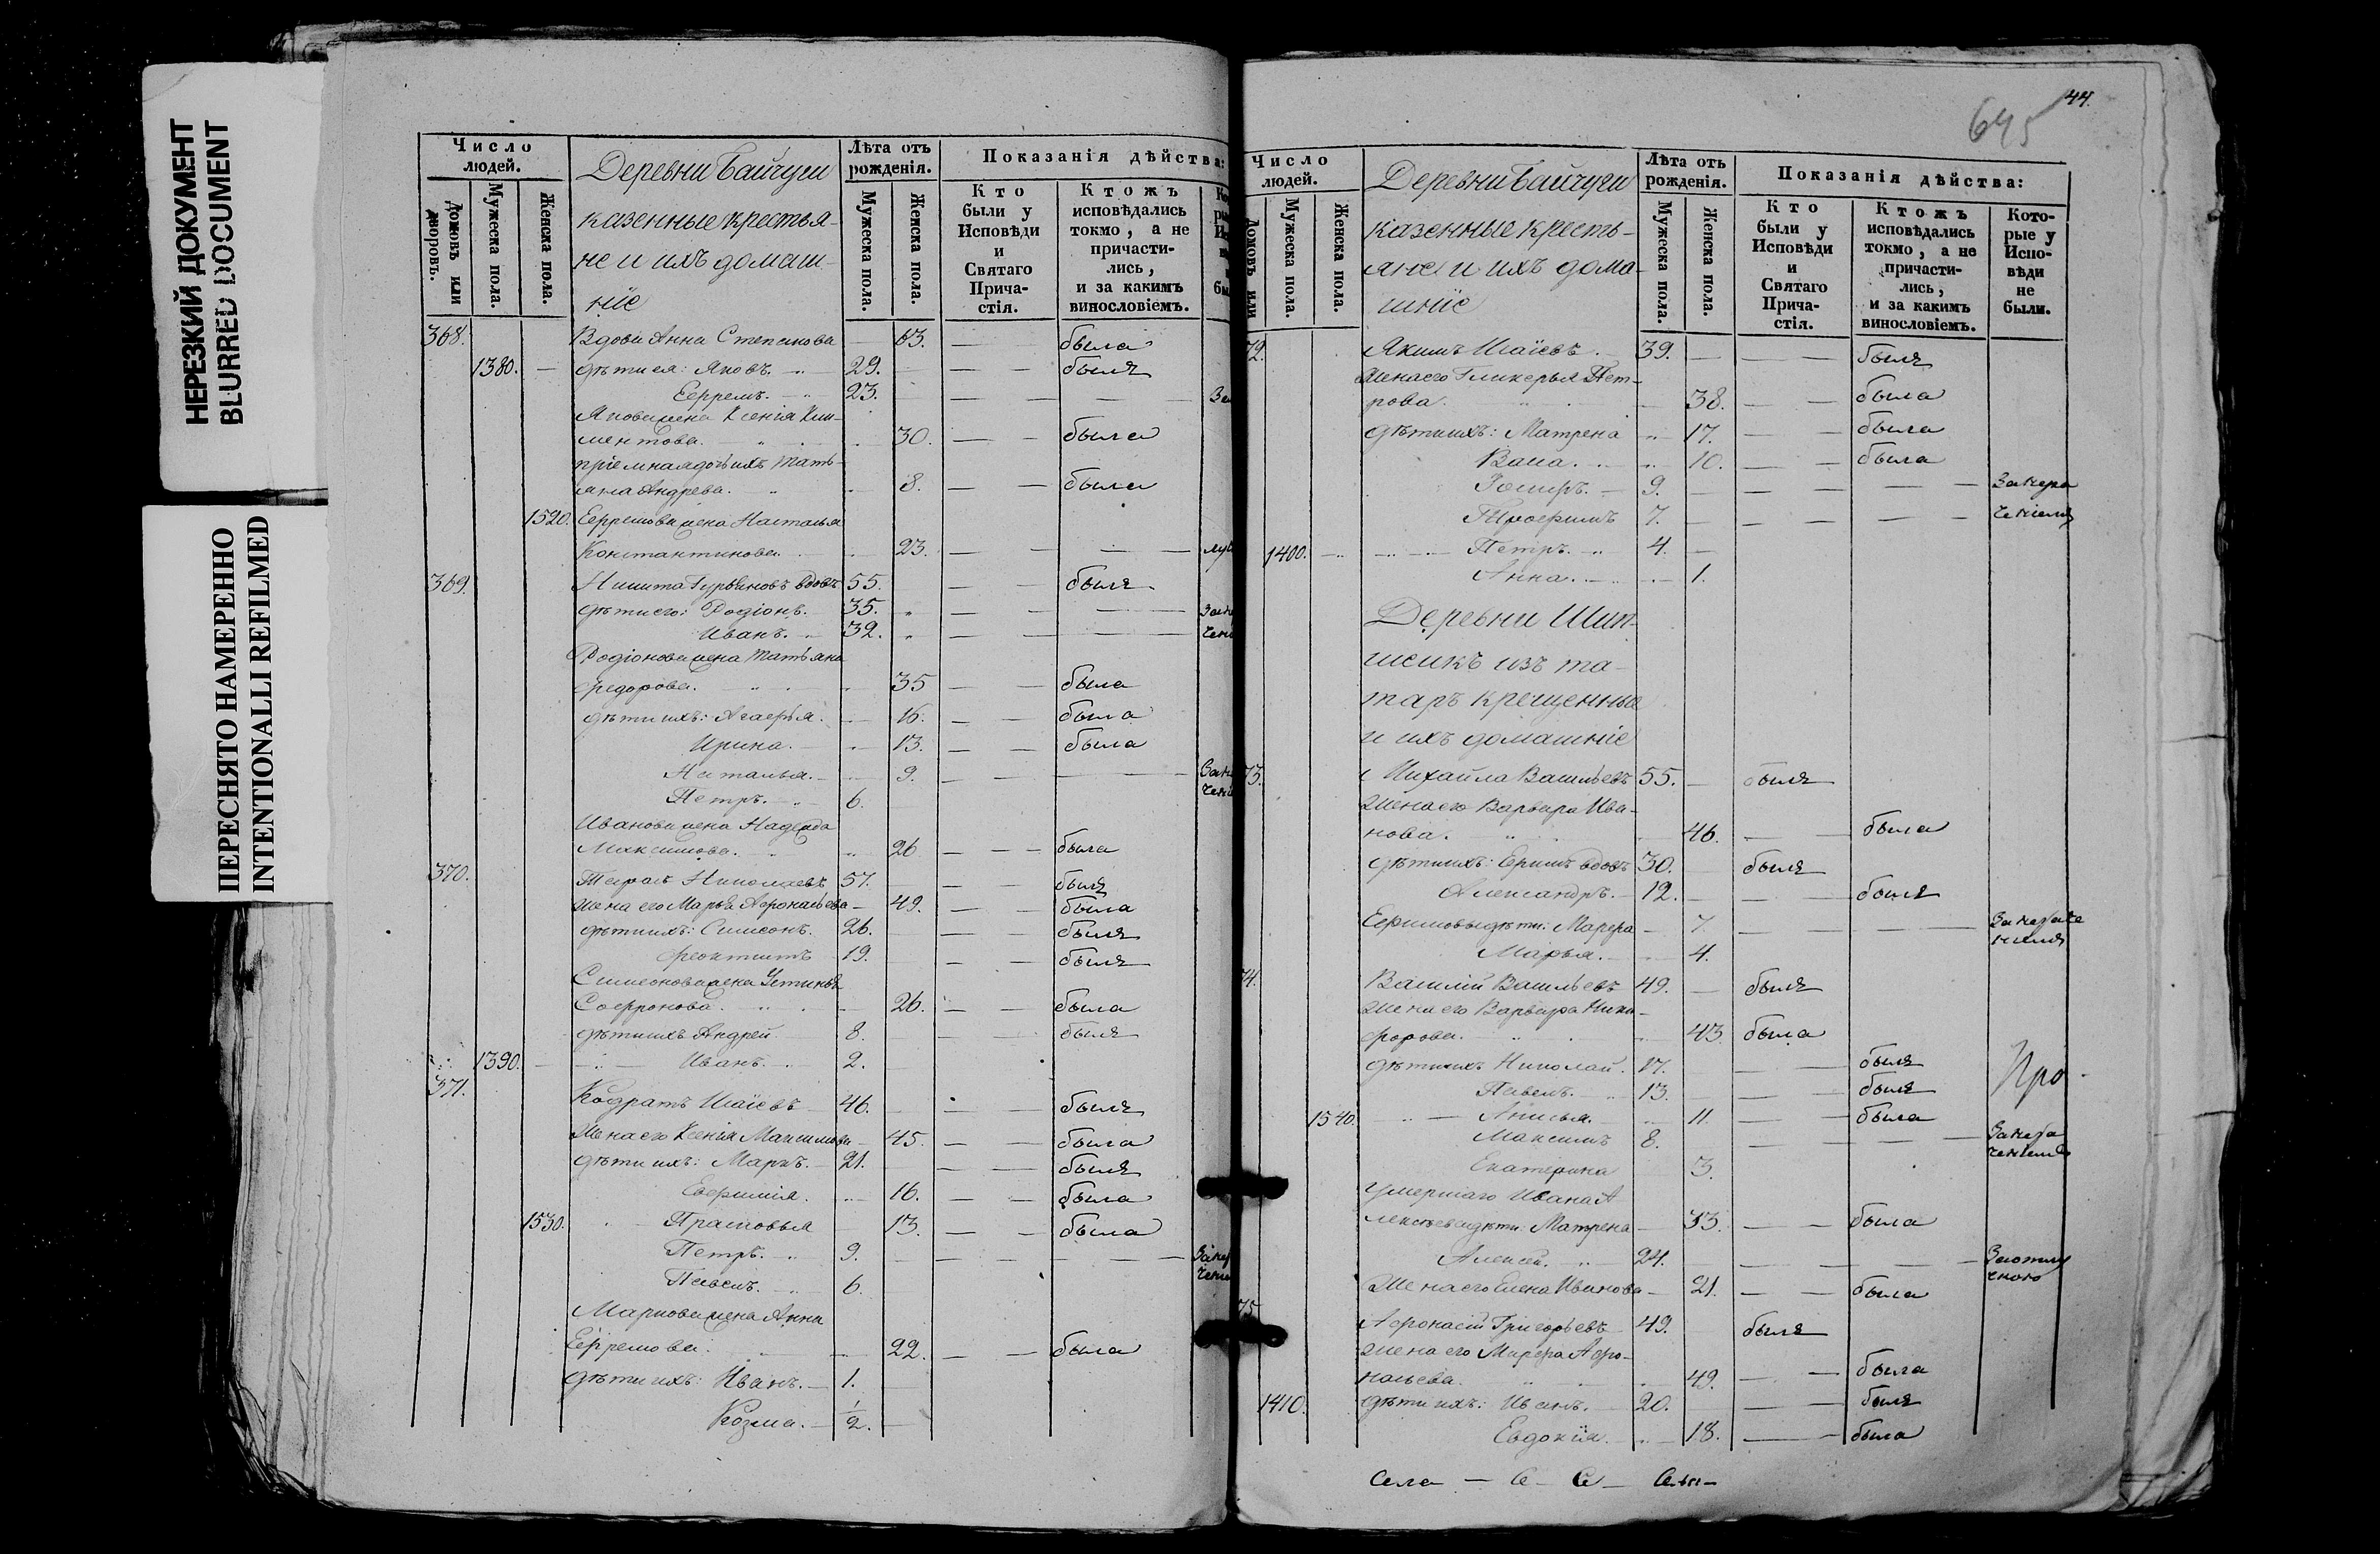 НЕРЕЗКИЙ ДОКУМЕНТ
BLURRED DOCUMENT
ПЕРЕСНЯТО НАМЕРЕННО
INTENTIONALLI REFILMED
Число людей.
Домовъ или дворовъ.
Мужеска пола.
Женска пола.
Деревни Байчуги
казенные крестья-
не и ихъ домаш-
ніе
Лѣта отъ рожденія.
Мужеска пола.
Женска пола.
Показанія дѣйства:
Кто были у Исповѣди и Святаго Прича-стія.
Ктожъ исповѣдались токмо, а не причасти-лись, и за какимъ винословіемъ.
368. Вдова Анна Степанова — 63. — была
1380. — дѣти ея: Яковъ. 29. — — былъ
Ефремъ. 23. — — — —
Яковa жена Ксенія Кли-
ментова. 30. — — была
пріемная дочь ихъ Тать-
яна Андрева. 8. — — была
1520. Ефремова жена Наталья
Константинова. 23. — — — —
369. Никита Гурьяновъ вдовъ 55. — былъ
дѣти его: Родіонъ. 35. — — — —
Иванъ. 32. — — — —
Родіонова жена Татьяна
Федорова. 35 — — была
дѣти ихъ: Агафья. 16. — — была
Ирина. 13. — — была
Наталья. 9. — — — —
Петръ. 6.
Иванова жена Надежда
Максимова. 26 — — — была
370. Тарасъ Николаевъ 57. — — былъ
жена его Марья Афонасьева — 49. — — была
дѣти ихъ: Симеонъ. 26. — — былъ
Феоктистъ 19. — — былъ
Симеонова жена Устинья
Софронова. 26. — — была
дѣти ихъ Андрей 8. — — былъ
1390. — Иванъ. 2.
371. Кодратъ Исаіевъ 46. — — былъ
жена его Ксенія Максимова — 45. — — была
дѣти ихъ: Маркъ. 21. — — былъ
Евфимія. 16. — — была
1530. Прасковья 13. — — была
Петръ. 9. — — — —
Павелъ. 6.
Маркова жена Анна
Ефремова. 22. — — была
дѣти ихъ: Иванъ. 1.
Козма. 1/2.
645 44.
Число людей.
Домовъ или
Мужеска пола.
Женска пола.
Деревни Байчуги
казенные кресть-
яне и ихъ дома-
шніе
Лѣта отъ рожденія.
Мужеска пола.
Женска пола.
Показанія дѣйства:
Кто были у Исповѣди и Святаго Прича-стія.
Ктожъ исповѣдались токмо, а не причасти-лись, и за какимъ винословіемъ.
Кото-рые у Испо-вѣди не были.
72. Якимъ Исаіевъ. 39. — — — былъ
жена его Гликерья Пет-
рова. 38. — — была
дѣти ихъ: Матрена 17. — — была
10. — — была
9. — — — —
Трофимъ 7. — — — —
1400. Петръ. 4. —
Анна. 1.
Деревни Шип-
шекъ изъ та-
таръ крещенные
и ихъ домашніе
73. Михайла Васильевъ 55. — былъ
жена его Варвара Ива-
нова. 46. — — была
дѣти ихъ: Ефимъ вдовъ 30. — былъ
Александръ. 12. — — былъ
Ефимовы дѣти: Марфа — 7. — — — —
Марья. 4.
74. Василій Васильевъ 49. — былъ
жена его Варвара Ники-
форова. 43. была
дѣти ихъ Николай. 17. — — былъ
Павелъ. 13. — — былъ
1540. Анисья. 11. — — была
Максимъ 8. — — — —
Екатерина 3.
Умершаго Ивана А
лексѣева дѣти: Матрена — 33. — — была
Алексей. 24. — — — —
жена его Елена Иванова — 21. — — была
75. Афонасій Григорьевъ 49. былъ
жена его Марфа Афо-
насьева. 49. — — была
1410. дѣти ихъ: Иванъ. 20. — — былъ
Евдокія. 18. — — была
Про-
Села —